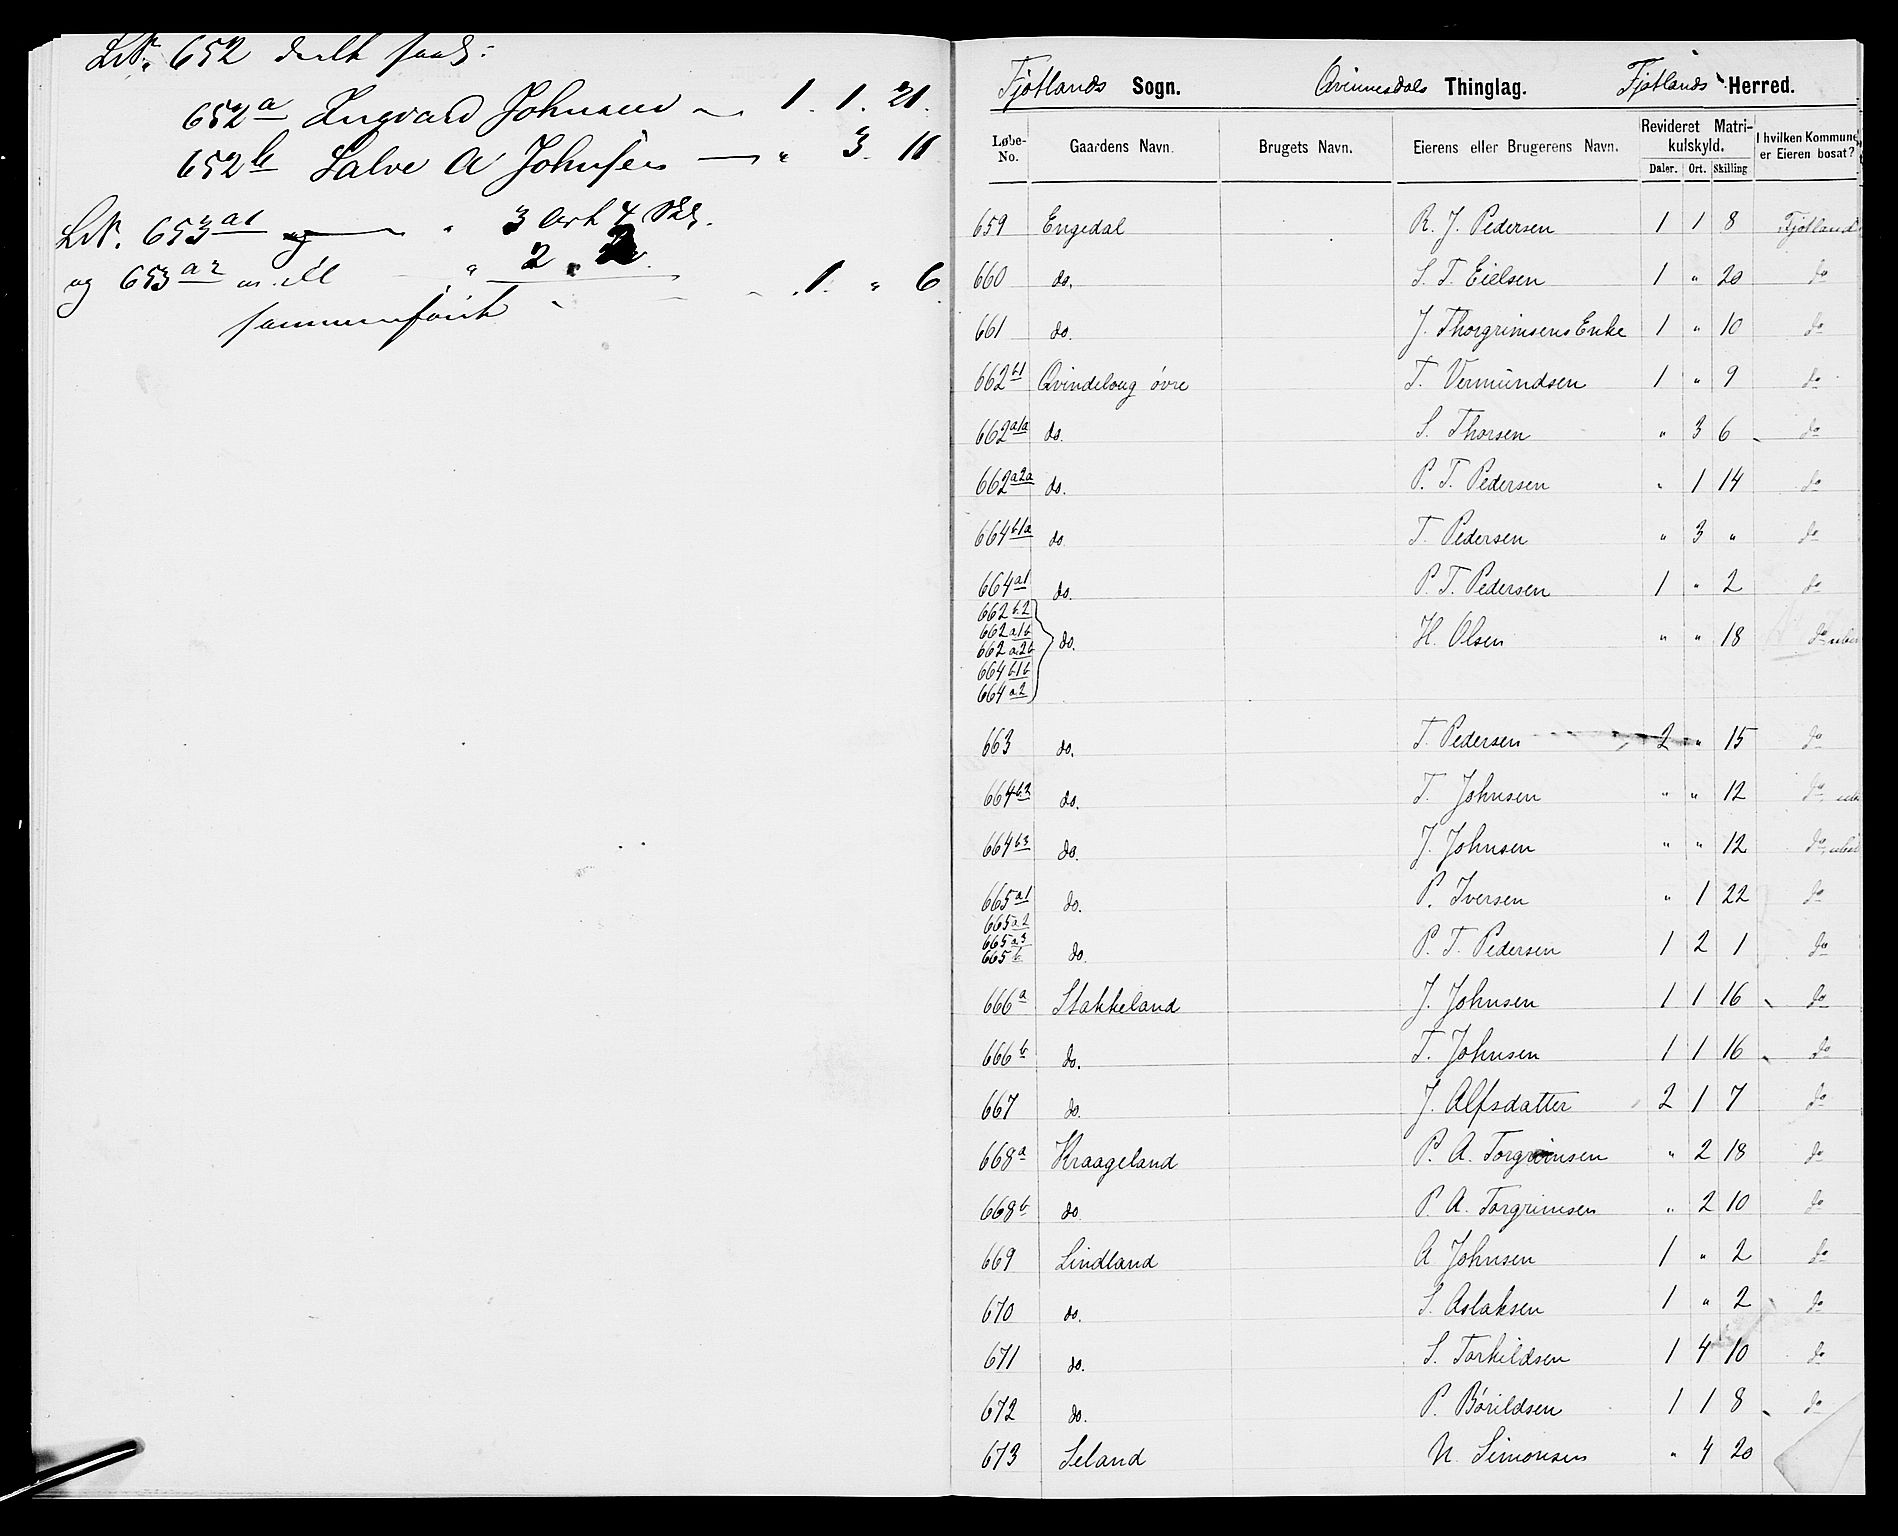 LN. 652 deelt saal:
652a Ingvard Johnsen — 1. 1. 21.
652b Salve A Johnsen — " 3. 11
LN. 653a1 " 3 Ort 4 Skl.
og 653a2 " 2 " 2.
sammenføiet 1. " 6.
Fjotlands Sogn. Qvinnesdals Thinglag. Fjotlands Herred.
Løbe-No. Gaardens Navn. Brugets Navn. Eierens eller Brugerens Navn. Revideret Matrikulskyld. I hvilken Kommune er Eieren bosat?
Daler. Ort. Skilling
659 Engedal R. J. Pedersen 1 1 8 Fjotland
660 do. S. T. Eielsen 1 " 20 do
661 do. J. Thorgrimsens Enke 1 " 10 do
662b1 Qvindeloug øvre T. Vermundsen 1 " 9 do
662a1a do. S. Thorsen " 3 6 do
662a2a do. P. T. Pedersen " 1 14 do
664b1a do T. Pedersen " 3 " do
664a1 do. P. T. Pedersen 1 " 2 do
662b2
662a1b
662a2b do. H. Olsen " " 18 do
664b1b
664a2
663 do. T. Pedersen 2 " 15 do
664b2 do. T. Johnsen " " 12 do
664b3 do. J. Johnsen " " 12 do
665a1 do. P. Iversen " 1 22 do
665a2
665a3
665b do P. T. Pedersen 1 2 1 do
666a Stakkeland J. Johnsen 1 1 16 do
666b do. T. Johnsen 1 1 16 do
667 do. J. Alfsdatter 2 1 7 do
668a Kraageland P. A. Torgrimsen " 2 18 do
668b do P. A. Torgrimsen " 2 10 do
669 Lindland A Johnsen 1 " 2 do
670 do. S. Aslaksen 1 " 2 do
671 do. S. Torkildsen 1 4 10 do
672 do. P. Børildsen 1 1 8 do
673 Seland N. Simonsen " 4 20